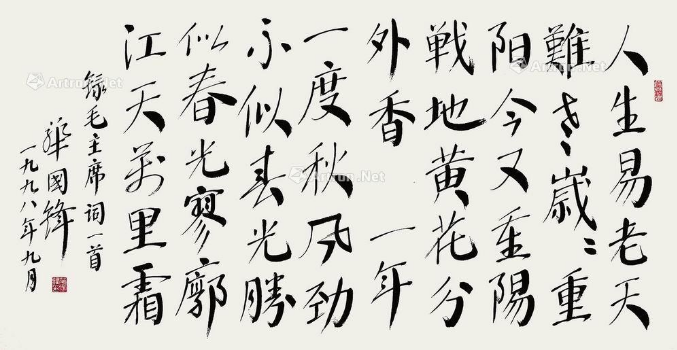 人生易老天
難老〻歲〻重
阳今又重陽
戦地黄花分
外香 一年
一度秋风劲
不似春光勝
似春光寥廓
江天萬里霜
錄毛主席词一首
華國鋒
一九九八年九月
Artron.Net
Artron.Net
Artron.Net